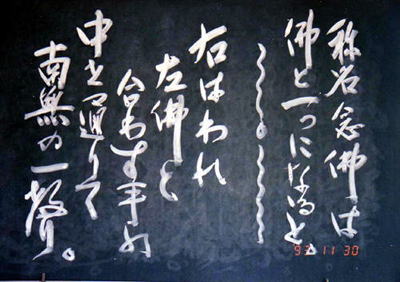 称名念佛は
佛と一つになると。
右はわれ
左佛と
合わす手の
中を通りて
南無の一聲。
93 11 30